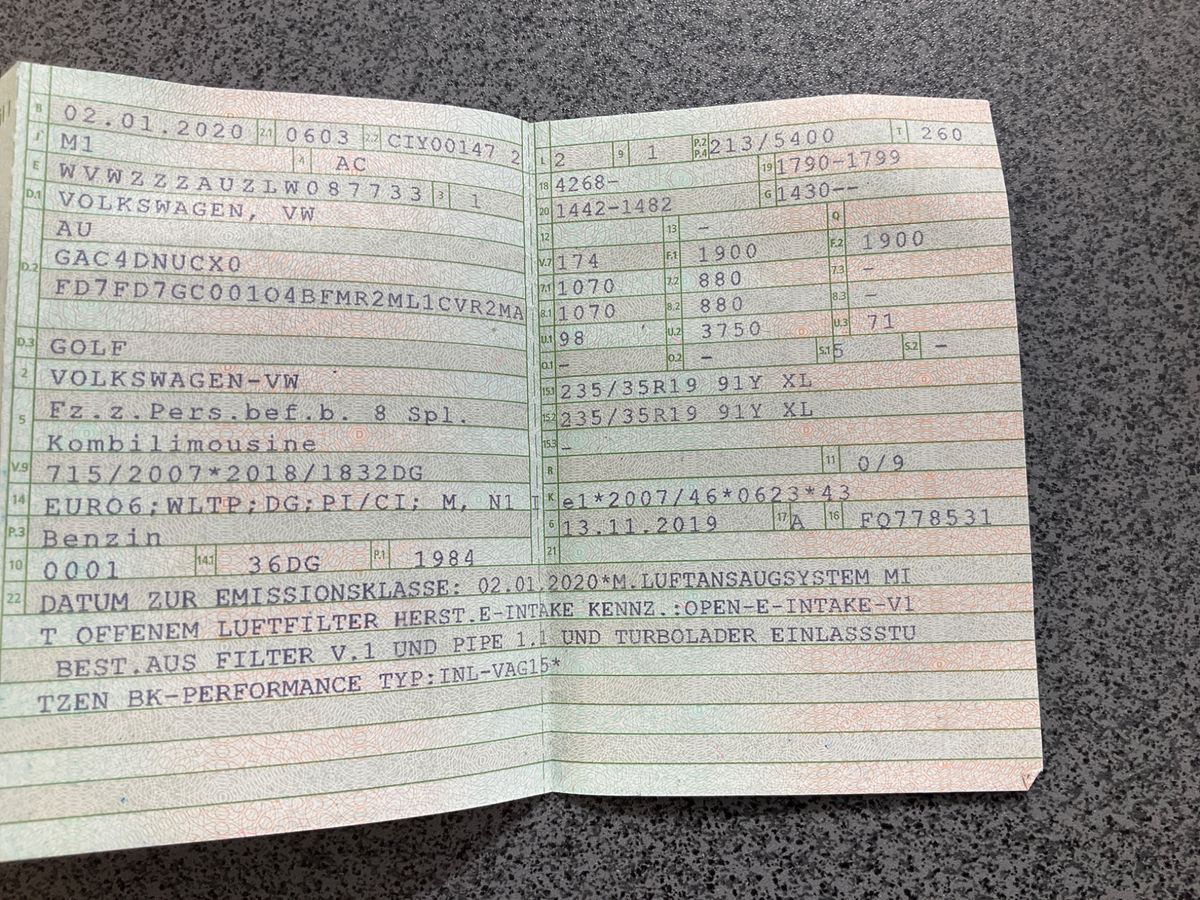 B 02.01.2020 2.1 0603 2.2 CIY00147 2
J M1 4 AC
E WVWZZZAUZLW087733 3 1
D.1 VOLKSWAGEN, VW
AU
D.2 GAC4DNUCX0
FD7FD7GC001O4BFMR2ML1CVR2MA
D.3 GOLF
2 VOLKSWAGEN-VW
5 Fz.z.Pers.bef.b. 8 Spl.
Kombilimousine
V.9 715/2007*2018/1832DG
14 EURO6;WLTP;DG;PI/CI; M, N1 I
P.3 Benzin
10 0001 14.1 36DG P.1 1984
L 2 9 1 P.2 P.4 213/5400 T 260
18 4268- 19 1790-1799
20 1442-1482 G 1430--
12 13 - Q
V.7 174 F.1 1900 F.2 1900
7.1 1070 7.2 880 7.3 -
8.1 1070 8.2 880 8.3 -
U.1 98 U.2 3750 U.3 71
O.1 - O.2 - S.1 5 S.2 -
15.1 235/35R19 91Y XL
15.2 235/35R19 91Y XL
15.3 -
R 11 0/9
K e1*2007/46*0623*43
6 13.11.2019 17 A 16 FQ778531
21
22 DATUM ZUR EMISSIONSKLASSE: 02.01.2020*M.LUFTANSAUGSYSTEM MI
T OFFENEM LUFTFILTER HERST.E-INTAKE KENNZ.:OPEN-E-INTAKE-V1
BEST.AUS FILTER V.1 UND PIPE 1.1 UND TURBOLADER EINLASSSTU
TZEN BK-PERFORMANCE TYP:INL-VAG15*